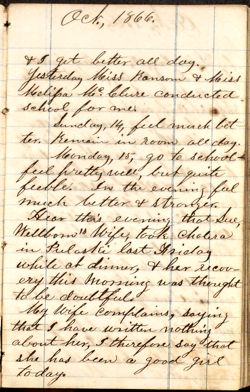 Oct, 1866.
& I get better all day.
Yesterday Miss Ransom & Miss
Melissa McClure conducted
school for me.
Sunday, 14, feel much bet
ter. Remain in room all day.
Monday, 15, go to school-
feel pretty well, but quite
feeble. In the evening feel
much better & stronger.
Hear this evening that
Wellborn's Wife, took cholera
in Pulaski last Friday
while at dinner, & her recov-
ery this morning was thought
to be doubtful.
My Wife complains, saying
that I have written nothing
about her, I therefore say that
she has been a good girl
today.